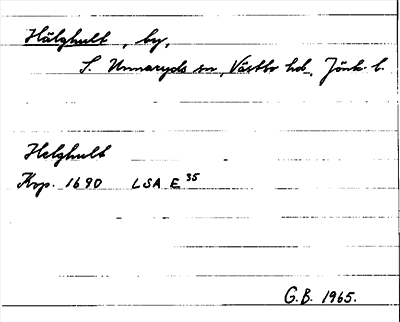 Hälghult, by,
S. Unnaryds sn, Västbo hd., Jönk. l.
Helghult
Kop. 1690 LSA E 35
G.B. 1965.